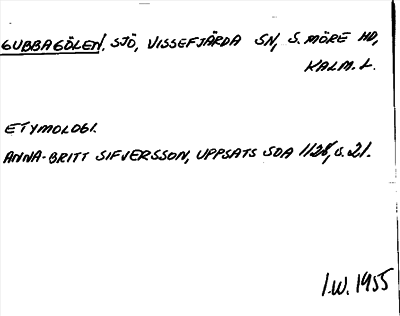 GUBBAGÖLEN, SJÖ, VISSEFJÄRDA SN, S. MÖRE HD,
KALM. L.
ETYMOLOGI.
ANNA-BRITT SIFVERSSON, UPPSATS SDA 1128, S. 21.
I.W. 1955